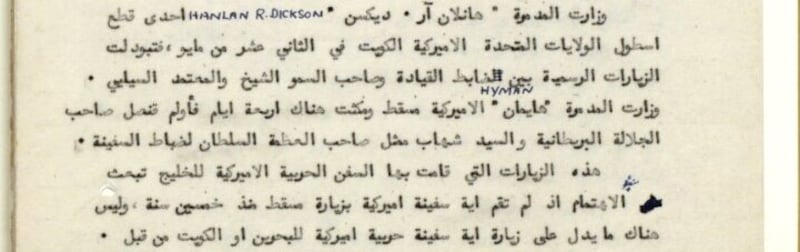 وزارت المدمرة " هانلان آر • ديكسن " HANLAN R. DICKSON احدى قطع
اسطول الولايات المتحدة الاميركية الكويت في الثاني عشر من مايو ، فتبودلت
الزيارات الرسمية بين ضابط القيادة وصاحب السمو الشيخ والمعتمد السياسي •
HYMAN
وزارت المدمرة " هايمان " الاميركية مسقط ومكثت هناك اربعة ايام فأولم قنصل صاحب
الجلالة البريطانية والسيد شهاب ممثل صاحب العظمة السلطان لضباط السفينة •
هذه الزيارات التي قامت بها السفن الحربية الاميركية للخليج تبعث
الاهتمام اذ لم تقم اية سفينة اميركية بزيارة مسقط منذ خمسين سنة ، وليس
هناك ما يدل على زيارة اية سفينة حربية اميركية للبحرين او الكويت من قبل •